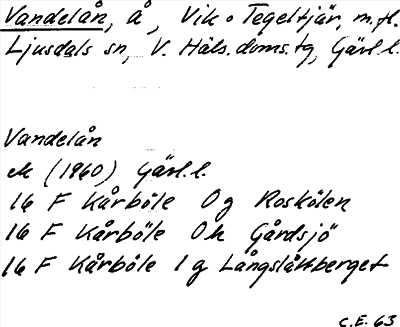 Vandelån, å, Vik o Tegeltjär, m.fl.
Ljusdals sn, V. Häls. doms. tg, Gävl.l.
Vandelån
M (1960) Gävl.l.
16 F Kårböle 0 g Roskölen
16 F Kårböle 0 h Gårdsjö
16 F Kårböle 1 g Långslåttberget
C.E. 63